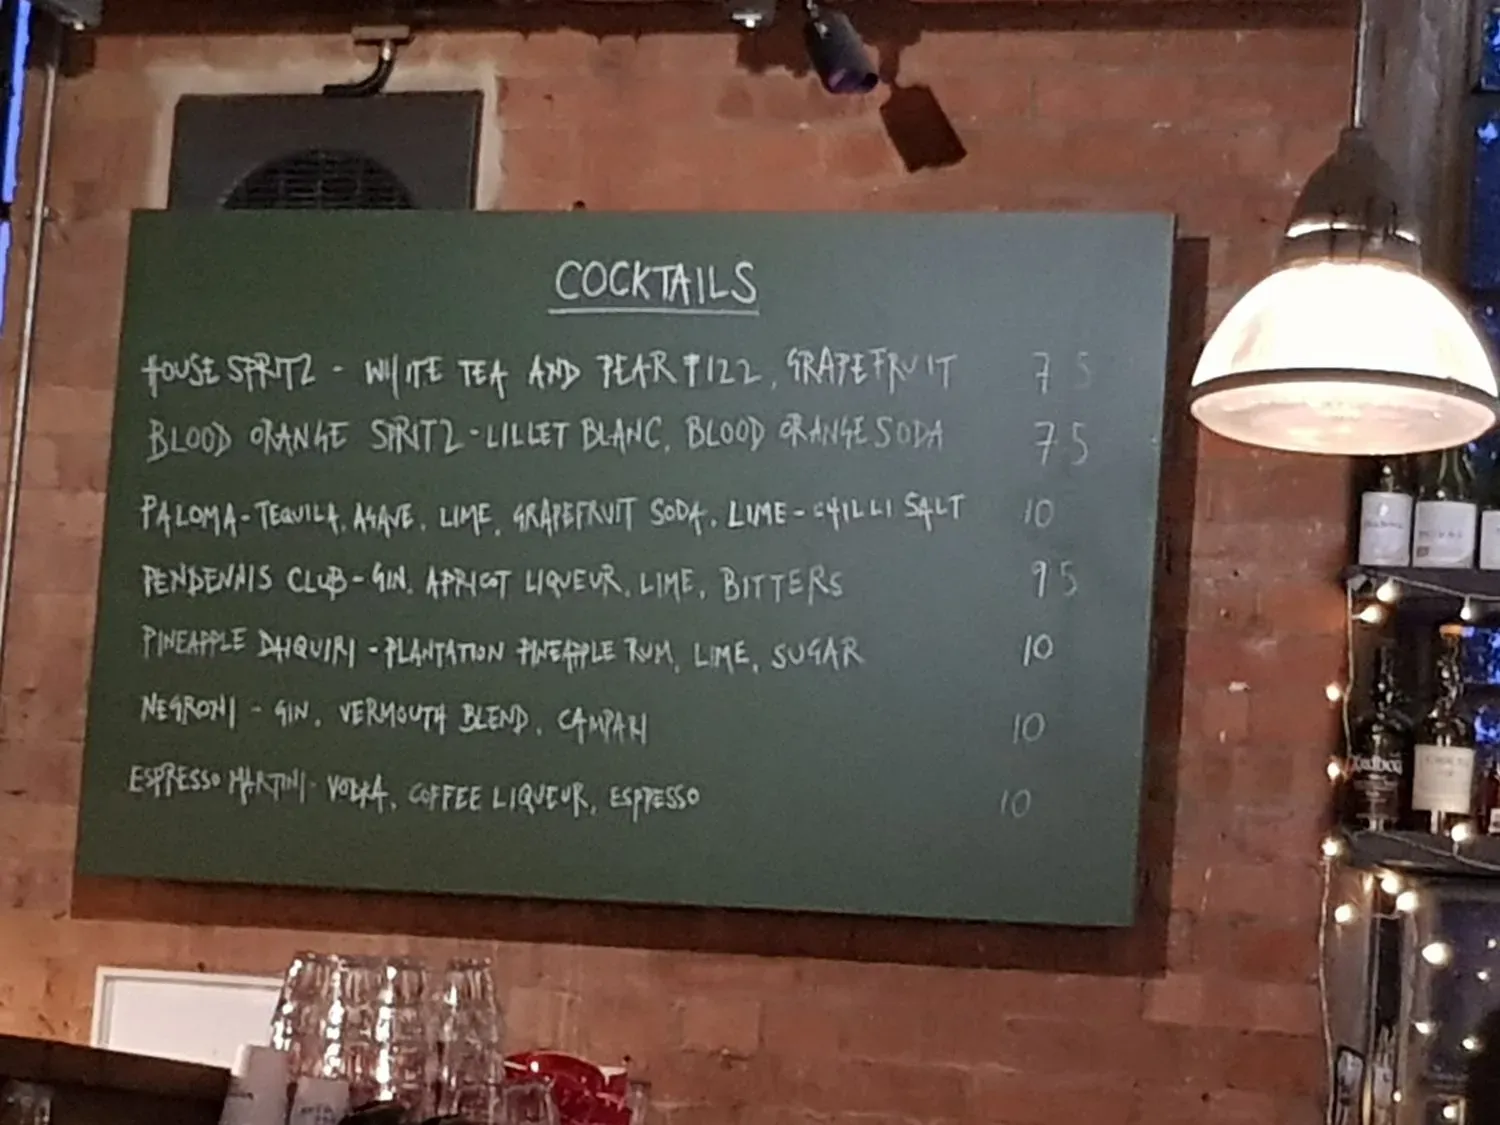 COCKTAILS
HOUSE SPRITZ - WHITE TEA AND PEAR FIZZ, GRAPEFRUIT 7 5
BLOOD ORANGE SPRITZ - LILLET BLANC, BLOOD ORANGE SODA 7 5
PALOMA - TEQUILA, AGAVE, LIME, GRAPEFRUIT SODA, LIME - CHILLI SALT 10
PENDENNIS CLUB - GIN, APRICOT LIQUEUR, LIME, BITTERS 9 5
PINEAPPLE DAIQUIRI - PLANTATION PINEAPPLE RUM, LIME, SUGAR 10
NEGRONI - GIN, VERMOUTH BLEND, CAMPARI 10
ESPRESSO MARTINI - VODKA, COFFEE LIQUEUR, ESPRESSO 10